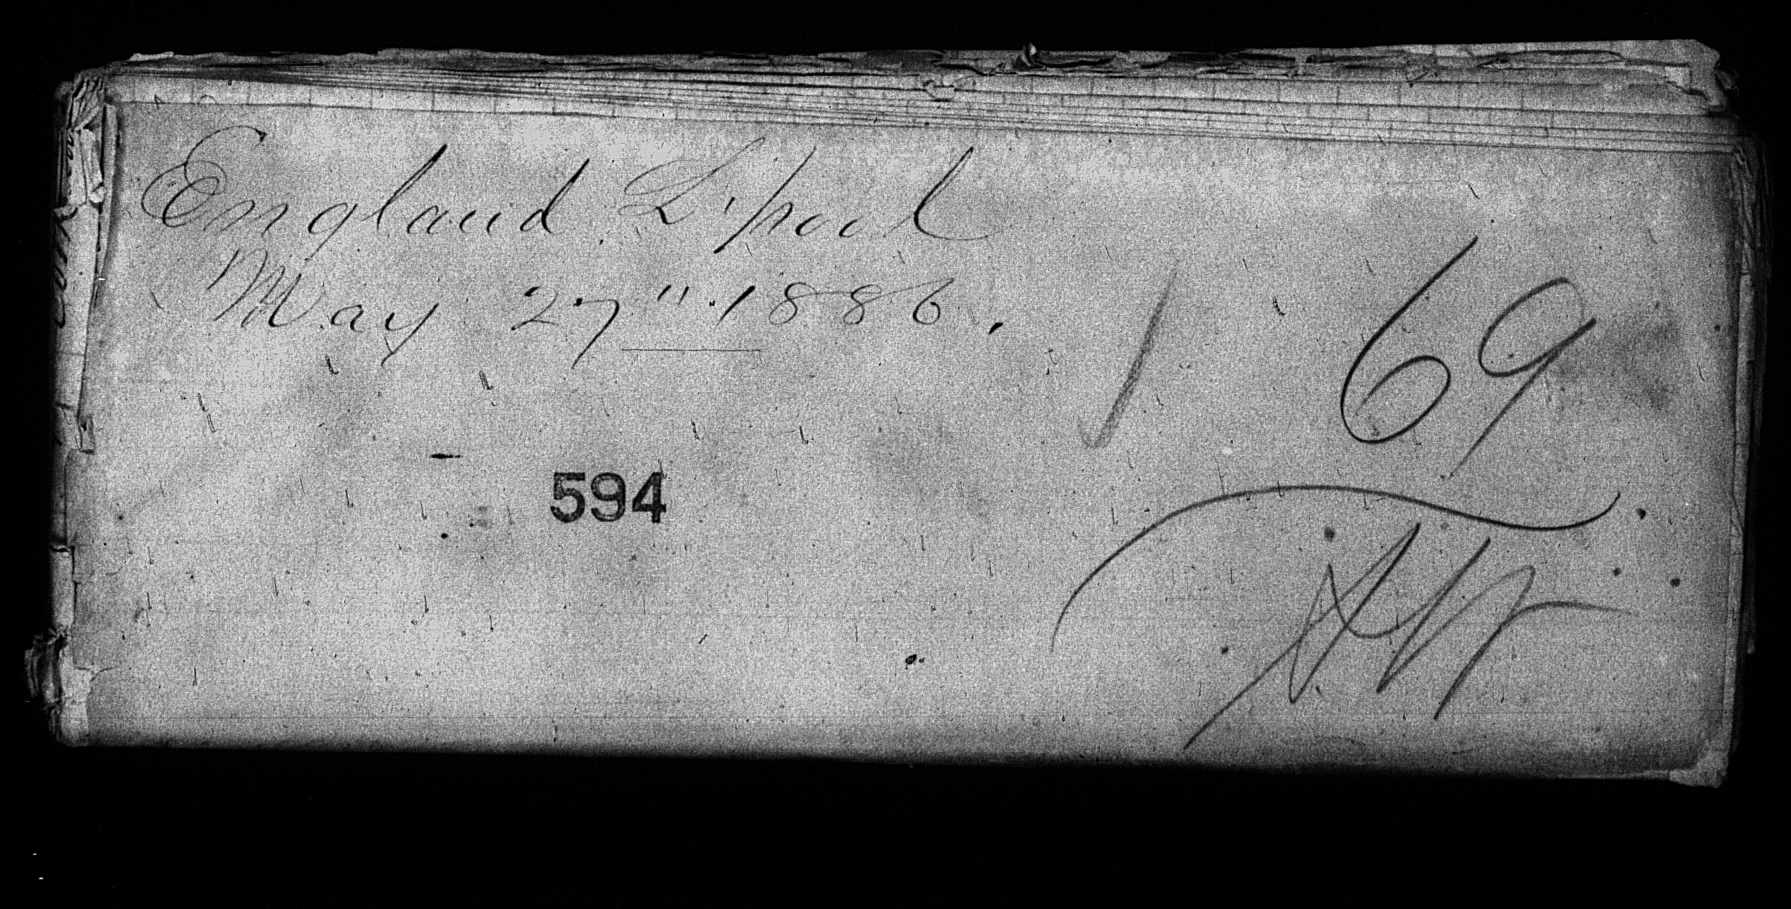 England L'pool
May 27" 1886.
69
594